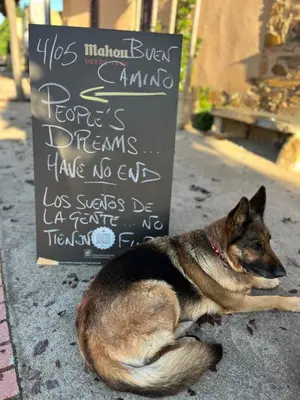 4/05 Mahou BUEN
DESDE 1890
CAMINO
PEOPLE'S
DREAMS...
HAVE NO END
LOS SUEÑOS DE
LA GENTE... NO
TIENEN FIN